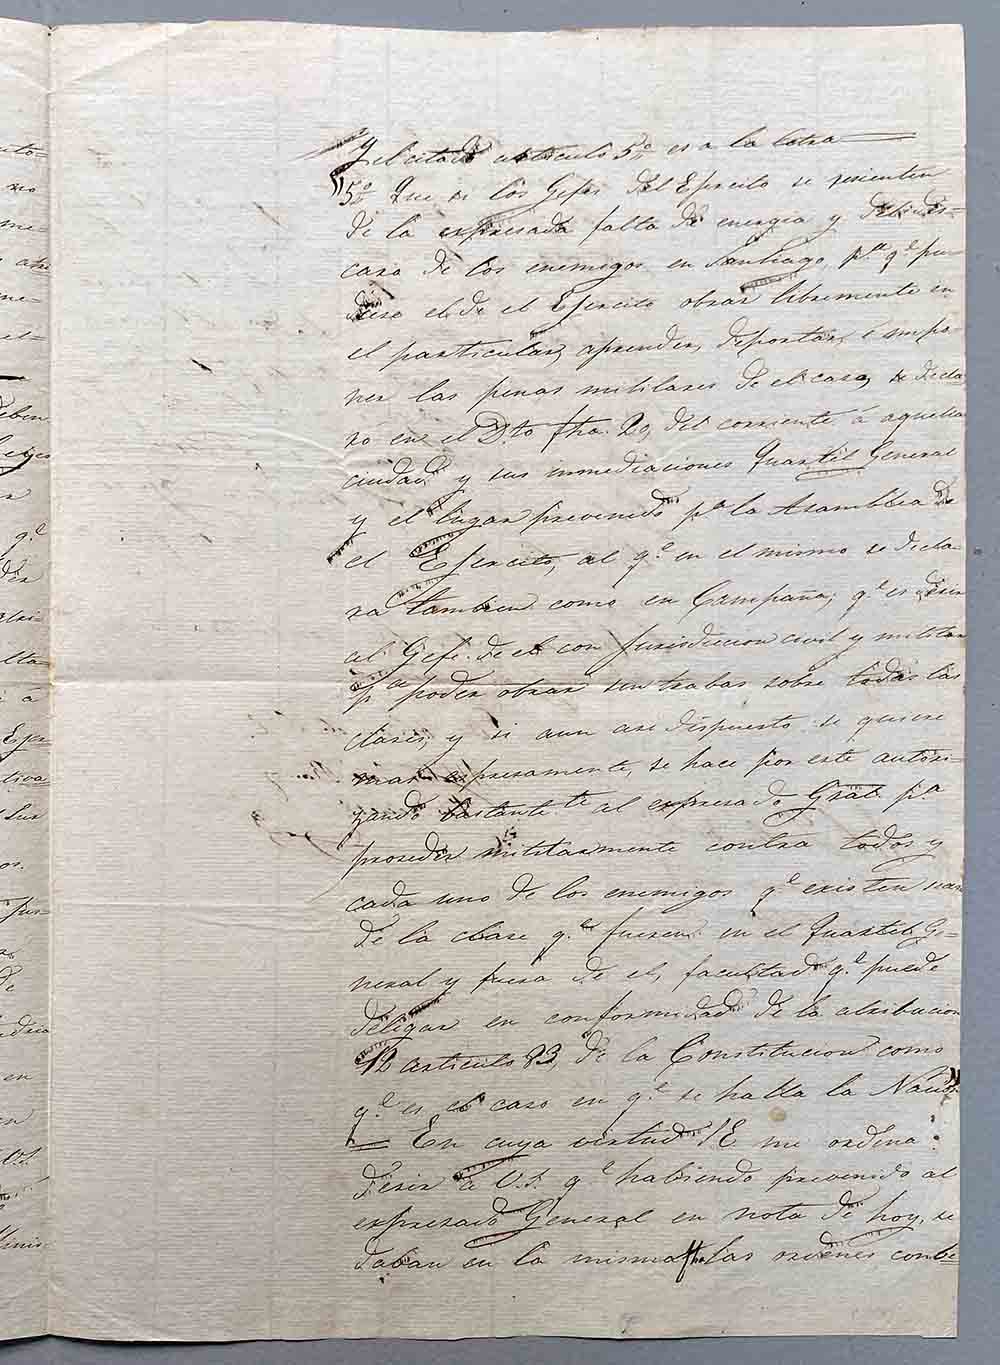 Y el citado articulo 5º es a la letra
"5º Que si los Gefes del Ejercito se resienten
de la expresada falta de energia y
caso de los enemigos en Santiago pª q.e pu-
diese el de el Ejercito obrar libremente en
el particular, aprender, deportar, é impo-
ner las penas militares de el caso, se decla-
ró en el D.to fha. 20, del corriente á aquella
ciudad y sus inmediaciones Quartil General
y el lugar prevenido pª la Asamblea de
el Ejercito, al q.e en el mismo se decla-
ra tambien como en Campaña; q.e es desir
al Gefe de el con Jurisdiccion civil y militar
pª poder obrar sin trabas sobre todas las
clases, y si aun ase dispuesto se quiere
mas expresamente, se hace por este autori-
zando bastante te al expresado Gral. pª
proseder militarmente contra todos y
cada uno de los enemigos q.e existen sean
de la clase q.e fueren en el Quartil Ge-
neral y fuera de el, facultad q.e puede
deligar en conformidad de la atribucion
12 articulo 83, de la Constitucion como
q.e es el caso en q.e se halla la Nacion
En cuya virtud S.E. me ordena
desir a V.S. q.e habiendo prevenido al
expresado General en nota de hoy, se
daban en la misma fha. las ordenes conbe-
no
me-
ne-
el-
deben
Leyes
q.e
lta
á
Ejer-
en
V.S.
Minis-